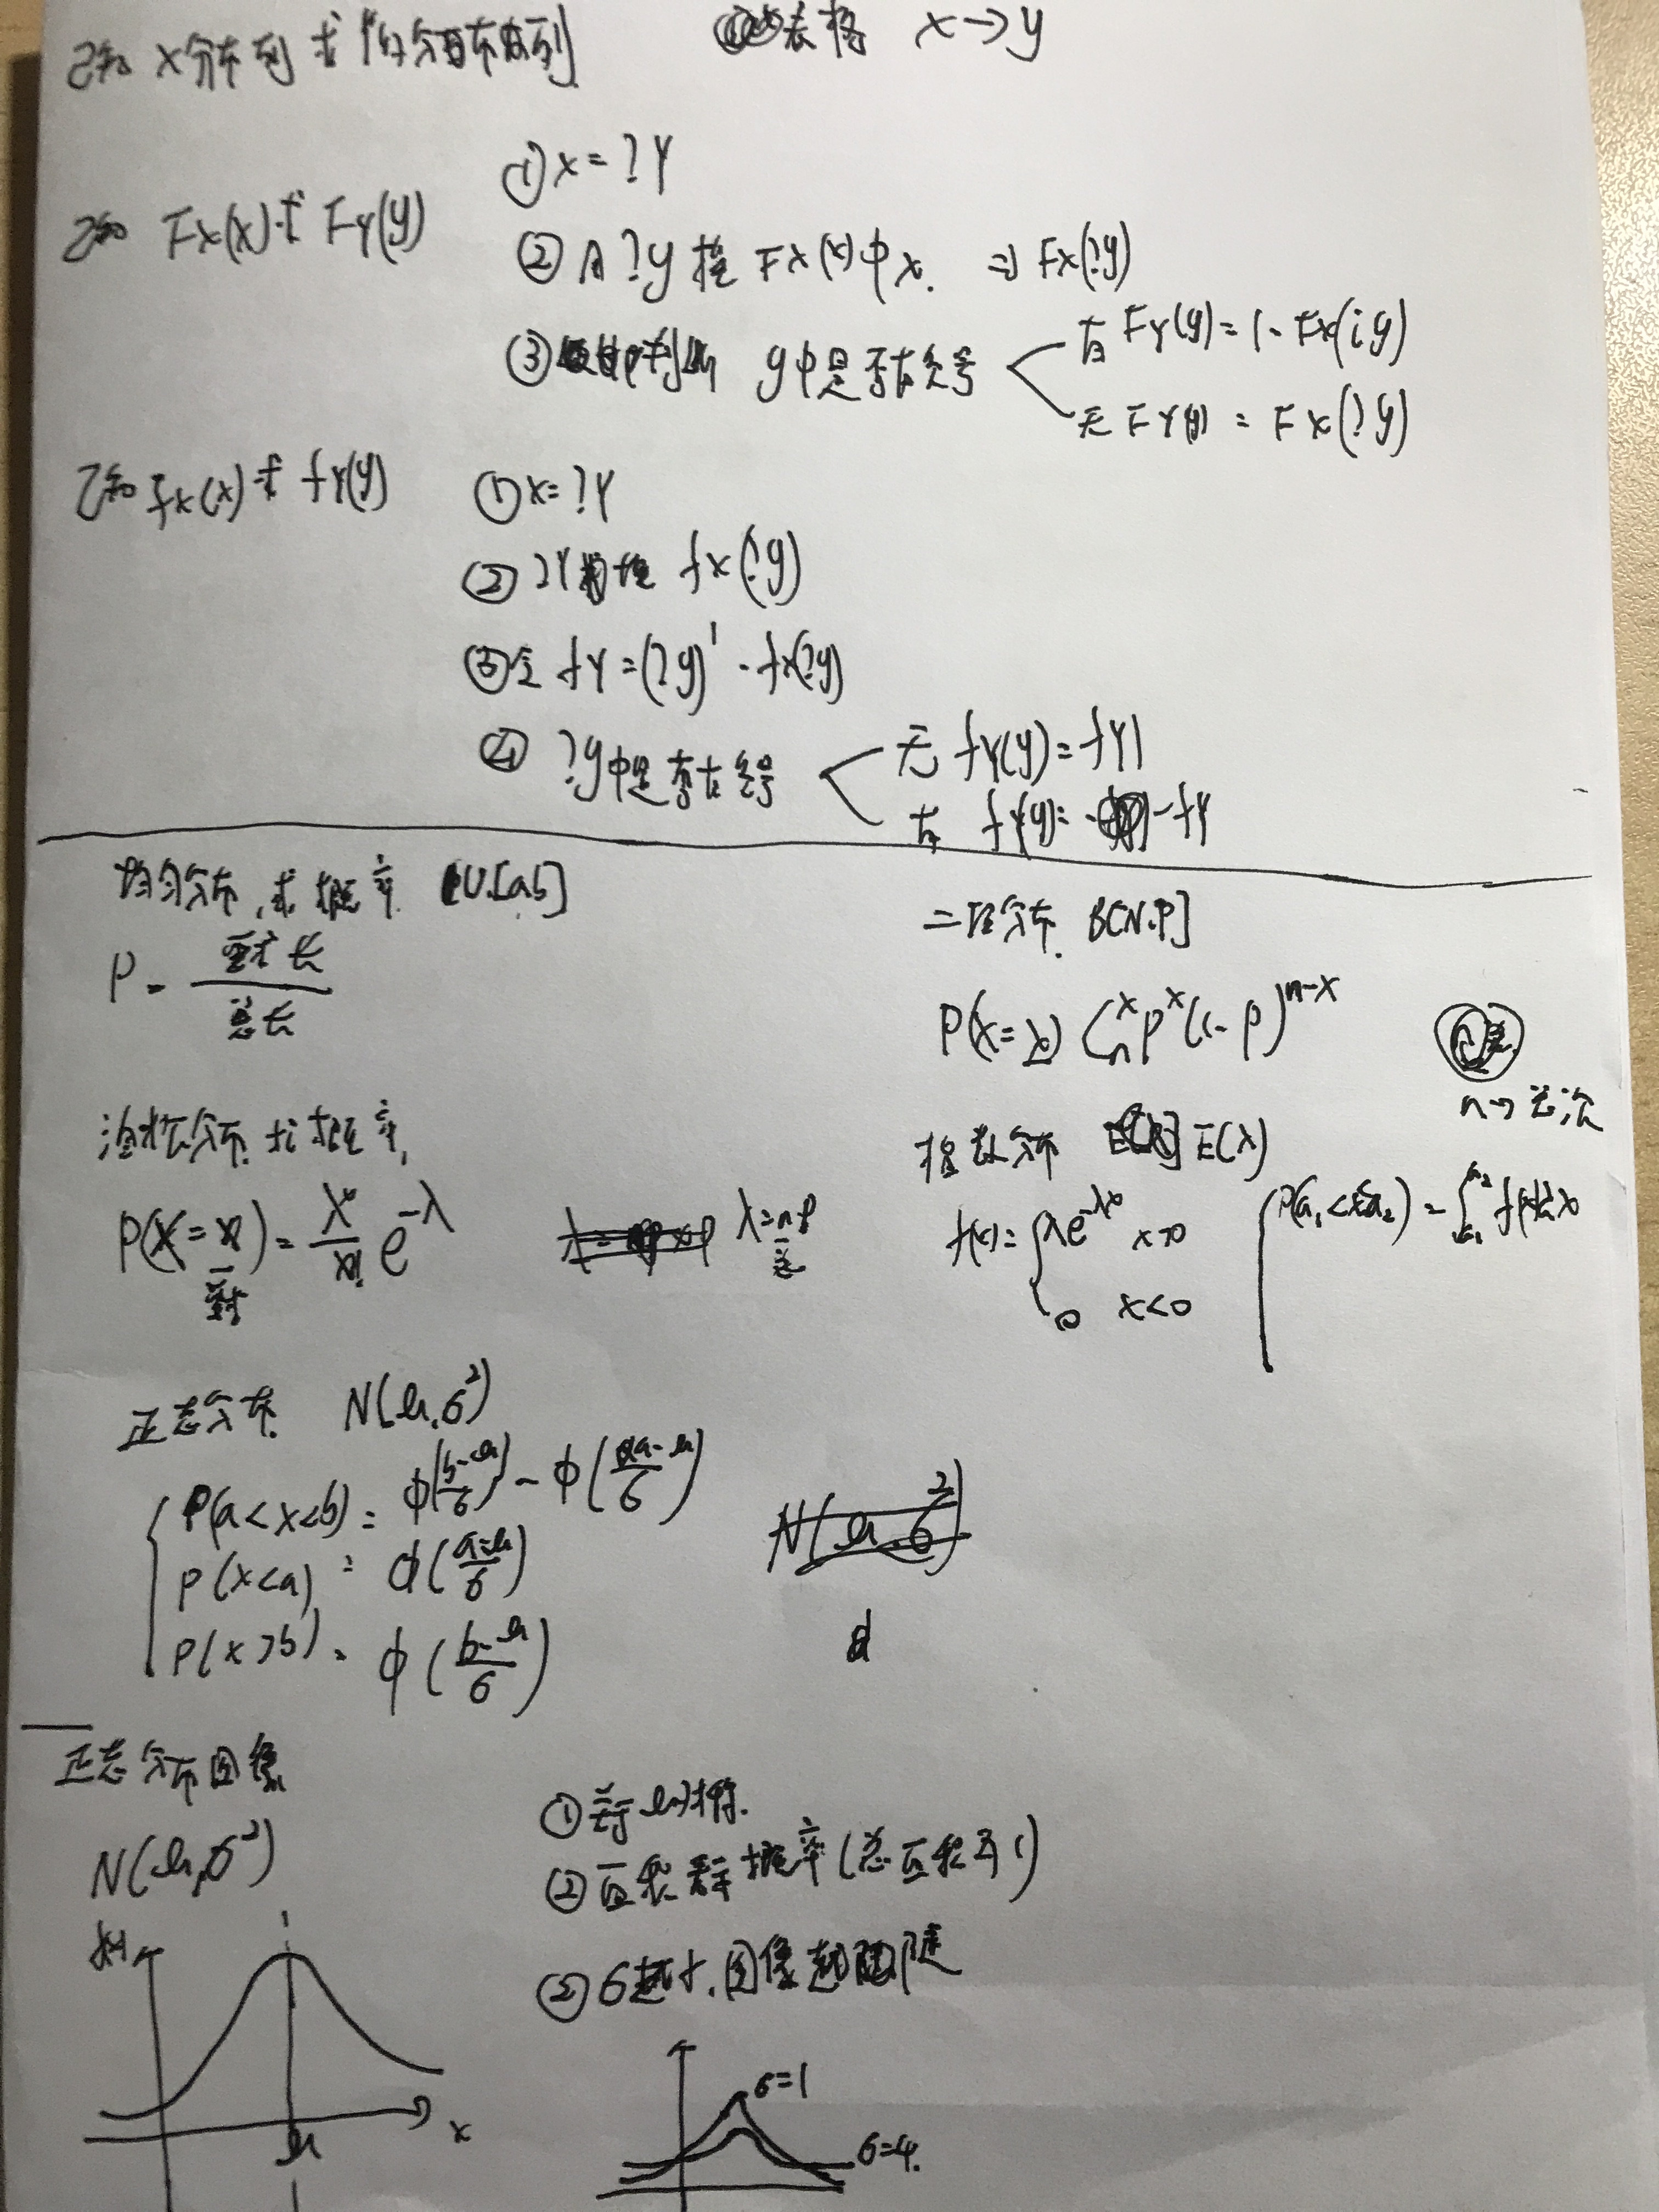 已知 x分布列 求Y的分布列 表格 x→y
已知 Fx(x) 求 FY(y)
① x = ?Y
② 用 ?y 换 Fx(x) 中 x. ⇒ Fx(?y)
③ 判断 y中是否有负号
有 FY(y) = 1 - Fx(?y)
无 FY(y) = Fx(?y)
已知 fx(x) 求 fY(y)
① x = ?Y
② ?Y fx(?y)
③ fY = (?y)' · fx(?y)
④ ?y中是否有负号
无 fY(y) = fY
有 fY(y) = -fY
均匀分布,求概率 U[a,b]
P = 要求长 / 总长
二项分布. B[N.P]
P(X=x) C_n^x p^x (1-p)^{n-x}
n→总次
泊松分布. 求概率.
P(X=x) = λ^x/x! e^{-λ} λ=np
指数分布 E(λ)
f(x) = { λe^{-λx} x>0
0 x<0
P(a₁<x<a₂) = ∫_{a₁}^{a₂} f(x)dx
正态分布. N(μ.σ²)
P(a<x<b) = φ((b-μ)/σ) - φ((a-μ)/σ)
P(x<a) = φ((a-μ)/σ)
P(x>b) = φ((b-μ)/σ)
正态分布图像
N(μ,σ²)
① 关于μ对称.
② 面积是概率(总面积为1)
③ σ越大.图像越
x
μ
σ=1
σ=4.